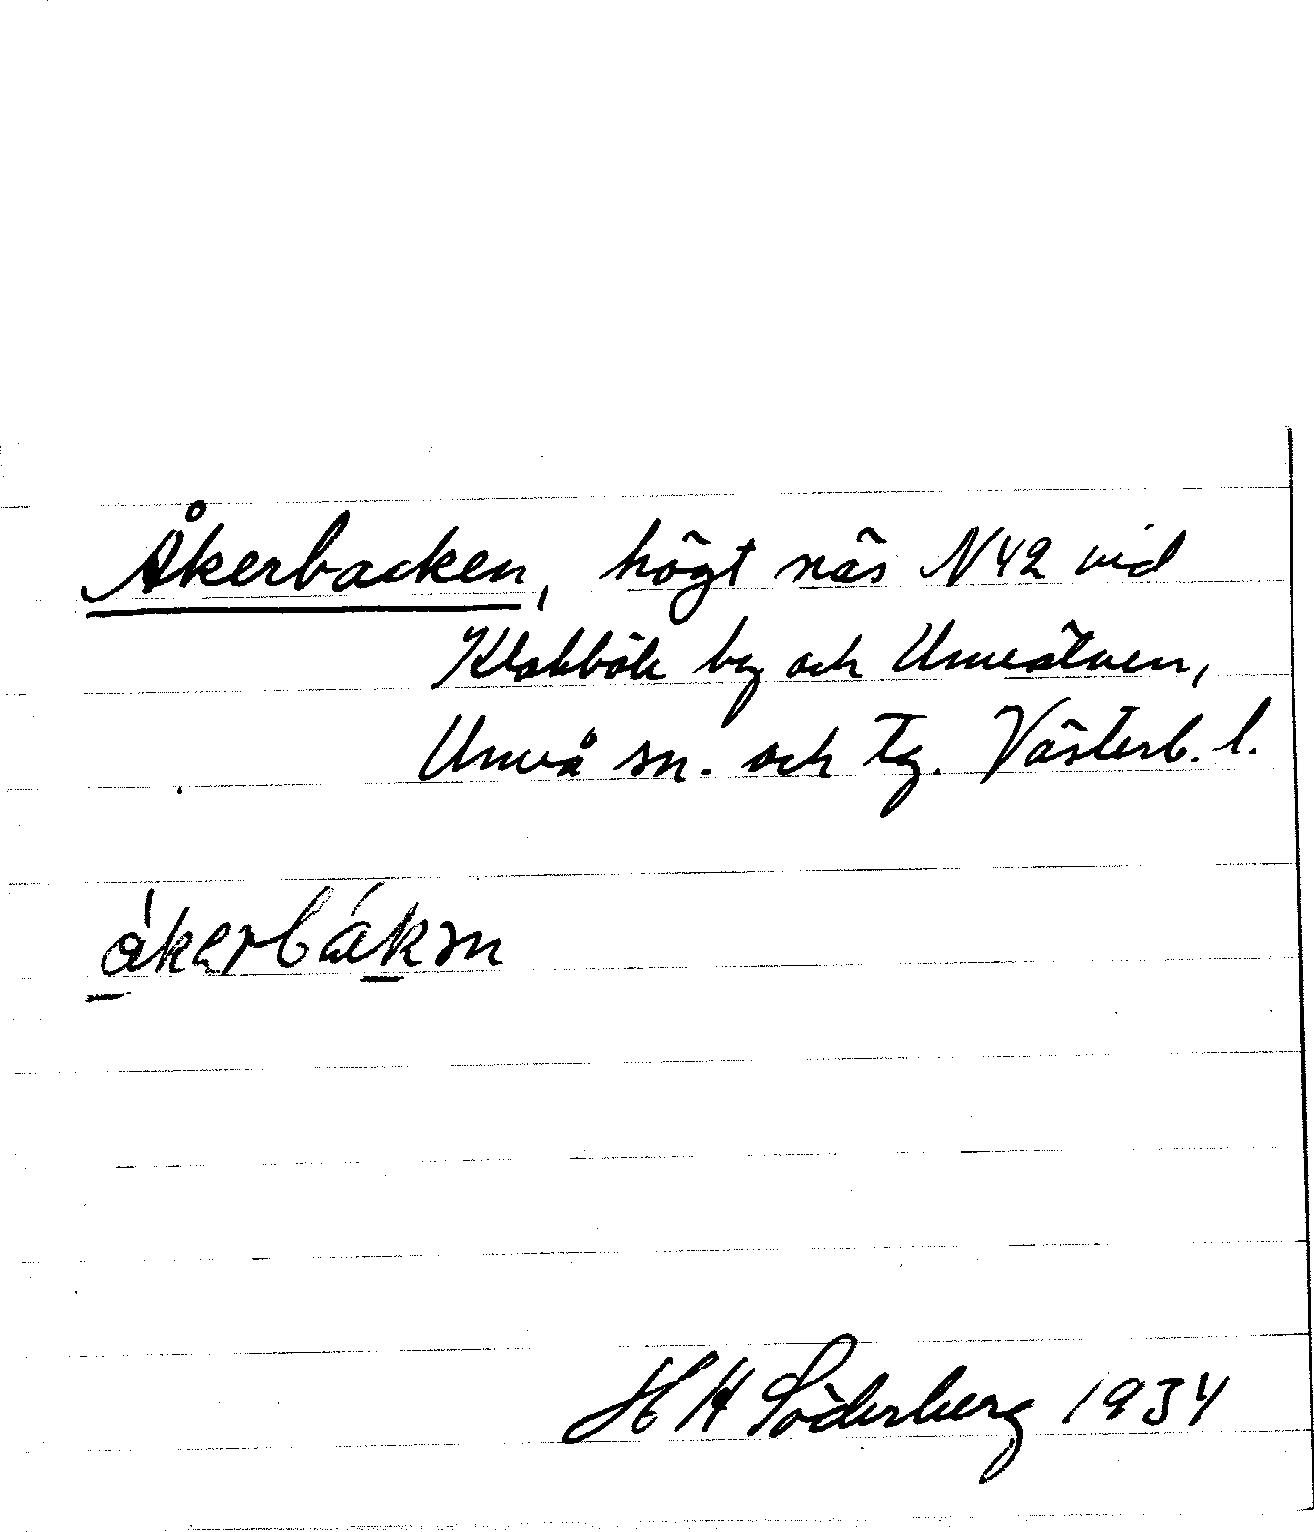 Åkerbacken, högt näs N42 vid
Klabböle by och Umeälven,
Umeå sn. och tg. Västerb. l.
åkerbákṃn
H H Söderberg 1934